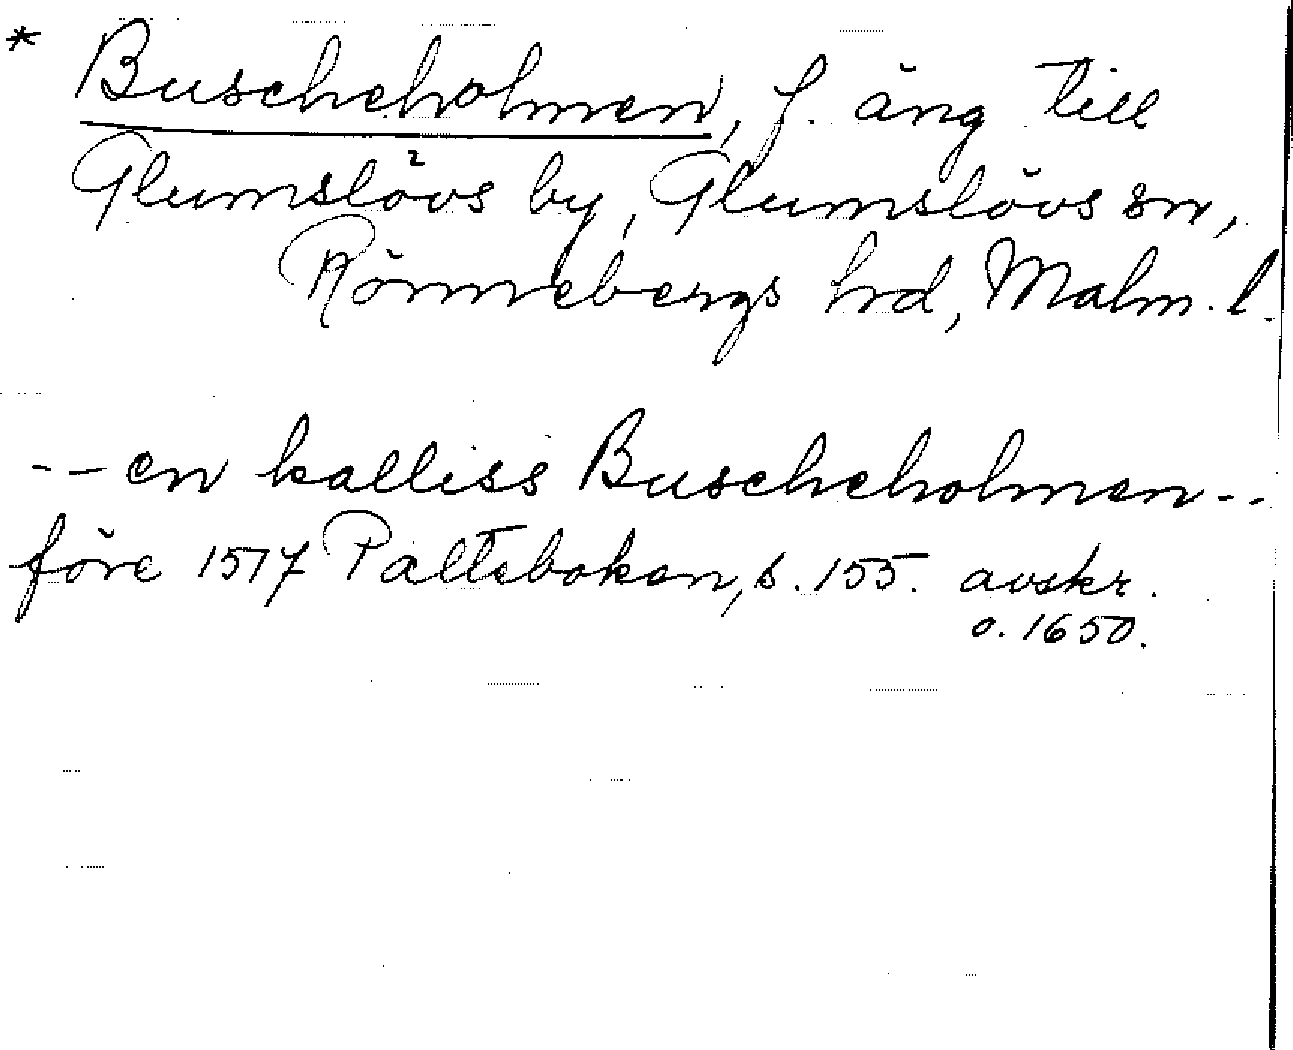 * Buscheholmen, f. äng till
Glumslövs by, Glumslövs sn,
Rönnebergs hrd, Malm. l.
-- en kalliss Buscheholmen --
före 1517 Palteboken, s. 155. avskr.
o. 1650.